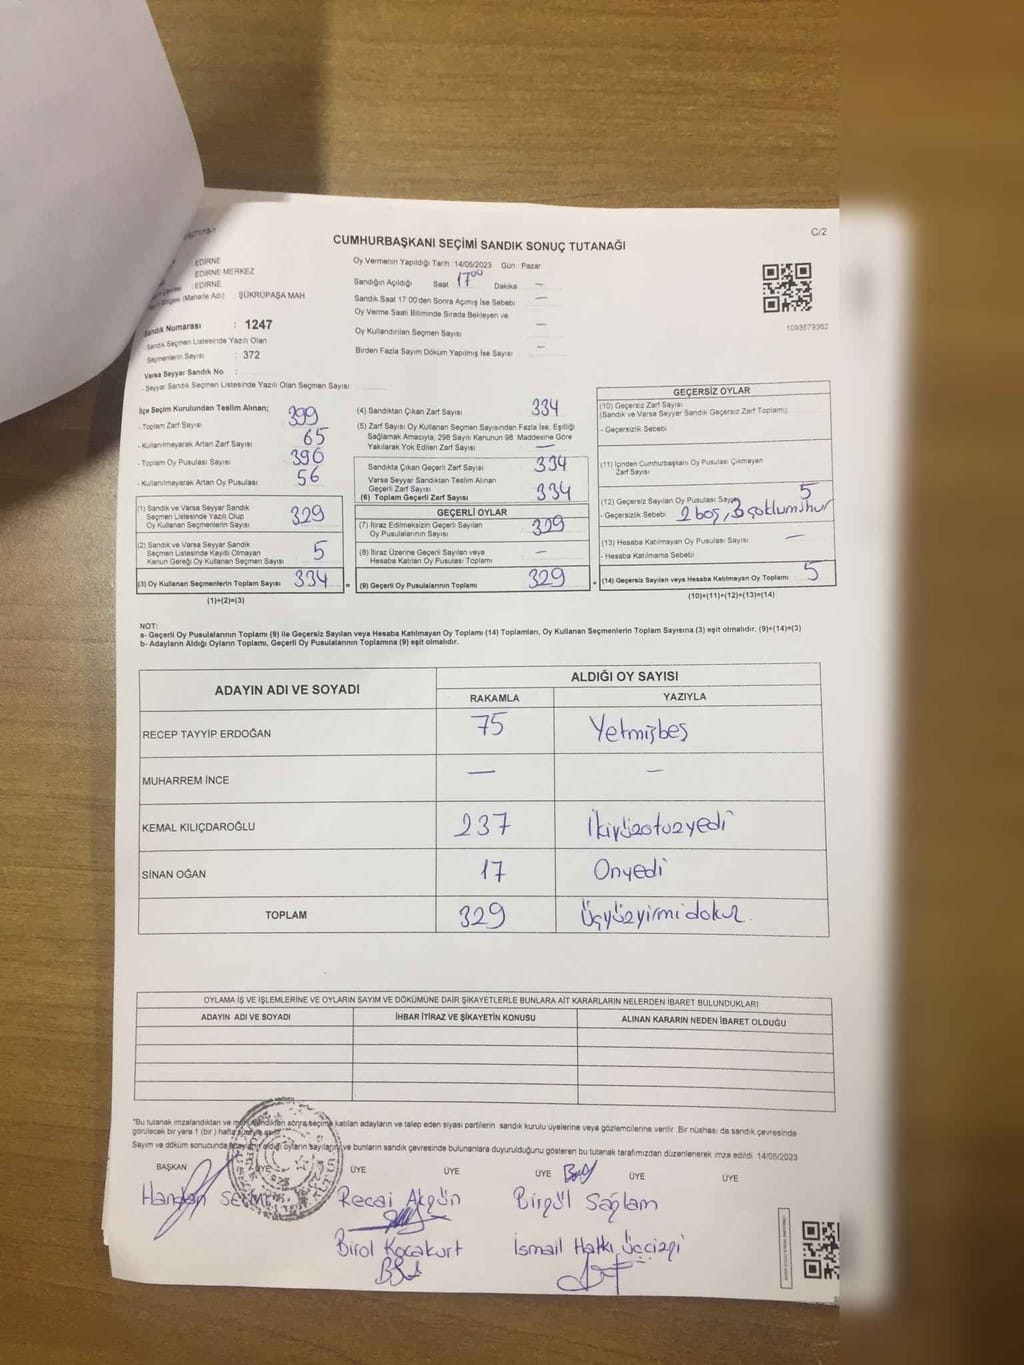 C/2
CUMHURBAŞKANI SEÇİMİ SANDIK SONUÇ TUTANAĞI
EDİRNE
EDİRNE MERKEZ
: EDİRNE
(Mahalle Adı) : ŞÜKRÜPAŞA MAH
Sandık Numarası : 1247
- Sandık Seçmen Listesinde Yazılı Olan
Seçmenlerin Sayısı : 372
Varsa Seyyar Sandık No :
- Seyyar Sandık Seçmen Listesinde Yazılı Olan Seçmen Sayısı
Oy Vermenin Yapıldığı Tarih : 14/05/2023 Gün : Pazar
Sandığın Açıldığı Saat 17 00 Dakika —
Sandık Saat 17.00'den Sonra Açımış İse Sebebi —
Oy Verme Saati Bitiminde Sırada Bekleyen ve
Oy Kullandırılan Seçmen Sayısı —
Birden Fazla Sayım Döküm Yapılmış İse Sayısı —
1093579362
İlçe Seçim Kurulundan Teslim Alınan;
- Toplam Zarf Sayısı 399
- Kullanılmayarak Artan Zarf Sayısı 65
- Toplam Oy Pusulası Sayısı 390
- Kullanılmayarak Artan Oy Pusulası 56
(1) Sandık ve Varsa Seyyar Sandık
Seçmen Listesinde Yazılı Olup
Oy Kullanan Seçmenlerin Sayısı 329
(2) Sandık ve Varsa Seyyar Sandık
Seçmen Listesinde Kayıtlı Olmayan
Kanun Gereği Oy Kullanan Seçmen Sayısı 5
(3) Oy Kullanan Seçmenlerin Toplam Sayısı 334 =
(1)+(2)=(3)
(4) Sandıktan Çıkan Zarf Sayısı 334
(5) Zarf Sayısı Oy Kullanan Seçmen Sayısından Fazla İse, Eşitliği
Sağlamak Amacıyla, 298 Sayılı Kanunun 98. Maddesine Göre
Yakılarak Yok Edilen Zarf Sayısı —
Sandıkta Çıkan Geçerli Zarf Sayısı 334
Varsa Seyyar Sandıktan Teslim Alınan
Geçerli Zarf Sayısı
(6) Toplam Geçerli Zarf Sayısı 334
GEÇERLİ OYLAR
(7) İtiraz Edilmeksizin Geçerli Sayılan
Oy Pusulalarının Sayısı 329
(8) İtiraz Üzerine Geçerli Sayılan veya
Hesaba Katılan Oy Pusulası Toplamı —
(9) Geçerli Oy Pusulalarının Toplamı 329 +
GEÇERSİZ OYLAR
(10) Geçersiz Zarf Sayısı
(Sandık ve Varsa Seyyar Sandık Geçersiz Zarf Toplamı)
- Geçersizlik Sebebi
(11) İçinden Cumhurbaşkanı Oy Pusulası Çıkmayan
Zarf Sayısı
(12) Geçersiz Sayılan Oy Pusulası Sayısı 5
- Geçersizlik Sebebi 2 boş, 3 çoklumühur
(13) Hesaba Katılmayan Oy Pusulası Sayısı —
- Hesaba Katılmama Sebebi
(14) Geçersiz Sayılan veya Hesaba Katılmayan Oy Toplamı 5
(10)+(11)+(12)+(13)=(14)
NOT:
a- Geçerli Oy Pusulalarının Toplamı (9) ile Geçersiz Sayılan veya Hesaba Katılmayan Oy Toplamı (14) Toplamları, Oy Kullanan Seçmenlerin Toplam Sayısına (3) eşit olmalıdır. (9)+(14)=(3)
b- Adayların Aldığı Oyların Toplamı, Geçerli Oy Pusulalarının Toplamına (9) eşit olmalıdır.
ADAYIN ADI VE SOYADI
ALDIĞI OY SAYISI
RAKAMLA YAZIYLA
RECEP TAYYİP ERDOĞAN 75 Yetmişbeş
MUHARREM İNCE — —
KEMAL KILIÇDAROĞLU 237 İkiyüzotuzyedi
SİNAN OĞAN 17 Onyedi
TOPLAM 329 Üçyüzyirmidokuz
OYLAMA İŞ VE İŞLEMLERİNE VE OYLARIN SAYIM VE DÖKÜMÜNE DAİR ŞİKAYETLERLE BUNLARA AİT KARARLARIN NELERDEN İBARET BULUNDUKLARI
ADAYIN ADI VE SOYADI İHBAR İTİRAZ VE ŞİKAYETİN KONUSU ALINAN KARARIN NEDEN İBARET OLDUĞU
*Bu tutanak imzalandıktan ve sonra seçime katılan adayların ve talep eden siyasi partilerin sandık kurulu üyelerine veya gözlemcilerine verilir. Bir nüshası da sandık çevresinde
görülecek bir yere 1 (bir) hafta
Sayım ve döküm sonucunda aldığı oyların ve bunların sandık çevresinde bulunanlara duyurulduğunu gösteren bu tutanak tarafımızdan düzenlenerek imza edildi. 14/05/2023
BAŞKAN ÜYE ÜYE ÜYE ÜYE ÜYE ÜYE
Handan Recai Akgün Birgül Sağlam
Birol Kocakurt İsmail Hakkı Üççizgi